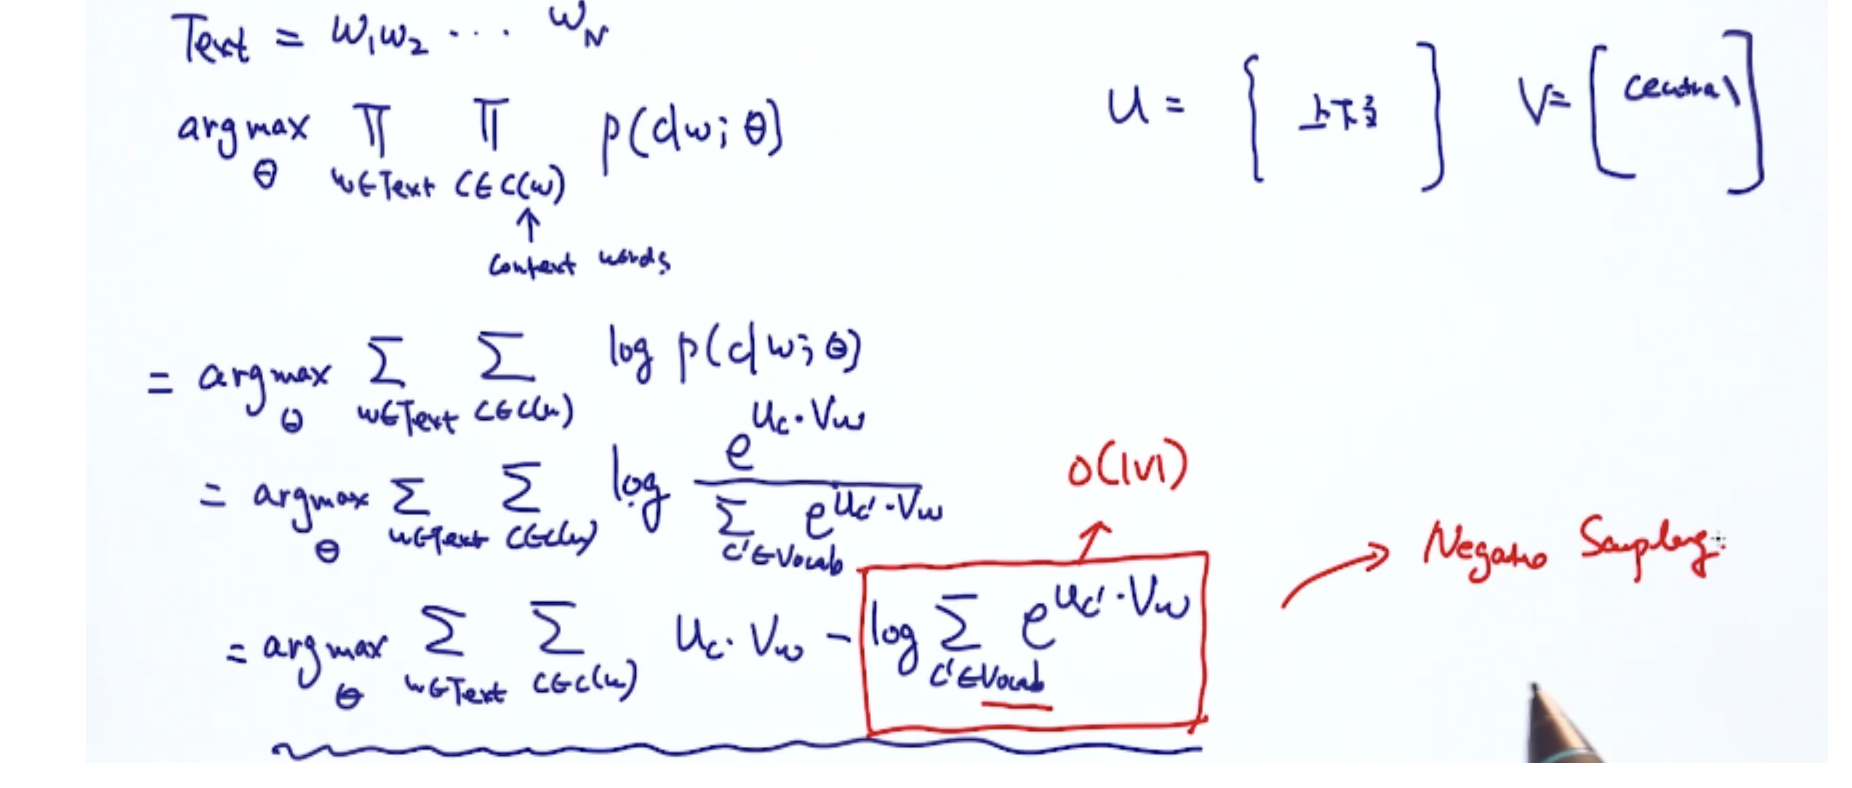 Text = w₁w₂ ... w_N
arg max_θ ∏_{w∈Text} ∏_{c∈C(w)} p(c|w;θ)
↑
Context words
U = [ 上下文 ] V = [ central ]
= arg max_θ ∑_{w∈Text} ∑_{c∈C(w)} log p(c|w;θ)
= arg max_θ ∑_{w∈Text} ∑_{c∈C(w)} log e^{u_c·v_w} / ∑_{c'∈Vocab} e^{u_c'·v_w}
= arg max_θ ∑_{w∈Text} ∑_{c∈C(w)} u_c·v_w − log ∑_{c'∈Vocab} e^{u_c'·v_w}
↑ O(|V|)
→ Negative Sampling: